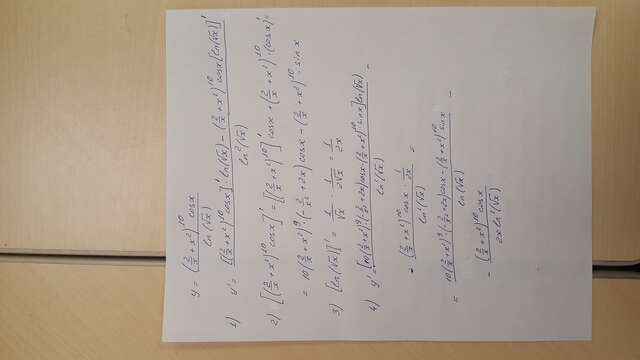 y = \frac{(\frac{2}{x} + x^2)^{10} cosx}{ln(√x)}
1) y' = \frac{[(\frac{2}{x} + x^2)^{10} cosx]' · ln(√x) - (\frac{2}{x} + x^2)^{10} cosx [ln(√x)]'}{ln^2(√x)}
2) [(\frac{2}{x} + x^2)^{10} cosx]' = [(\frac{2}{x} + x^2)^{10}]' cosx + (\frac{2}{x} + x^2)^{10} · (cosx)' =
= 10(\frac{2}{x} + x^2)^9 · (-\frac{2}{x^2} + 2x) cosx - (\frac{2}{x} + x^2)^{10} · sinx
3) [ln(√x)]' = \frac{1}{√x} · \frac{1}{2√x} = \frac{1}{2x}
4) y' = \frac{[10(\frac{2}{x} + x^2)^9 · (-\frac{2}{x^2} + 2x) cosx - (\frac{2}{x} + x^2)^{10} · sinx] ln(√x)}{ln^2(√x)} -
- \frac{(\frac{2}{x} + x^2)^{10} cosx · \frac{1}{2x}}{ln^2(√x)} =
= \frac{10(\frac{2}{x} + x^2)^9 · (-\frac{2}{x^2} + 2x) cosx - (\frac{2}{x} + x^2)^{10} sinx}{ln(√x)} -
- \frac{(\frac{2}{x} + x^2)^{10} cosx}{2x ln^2(√x)}